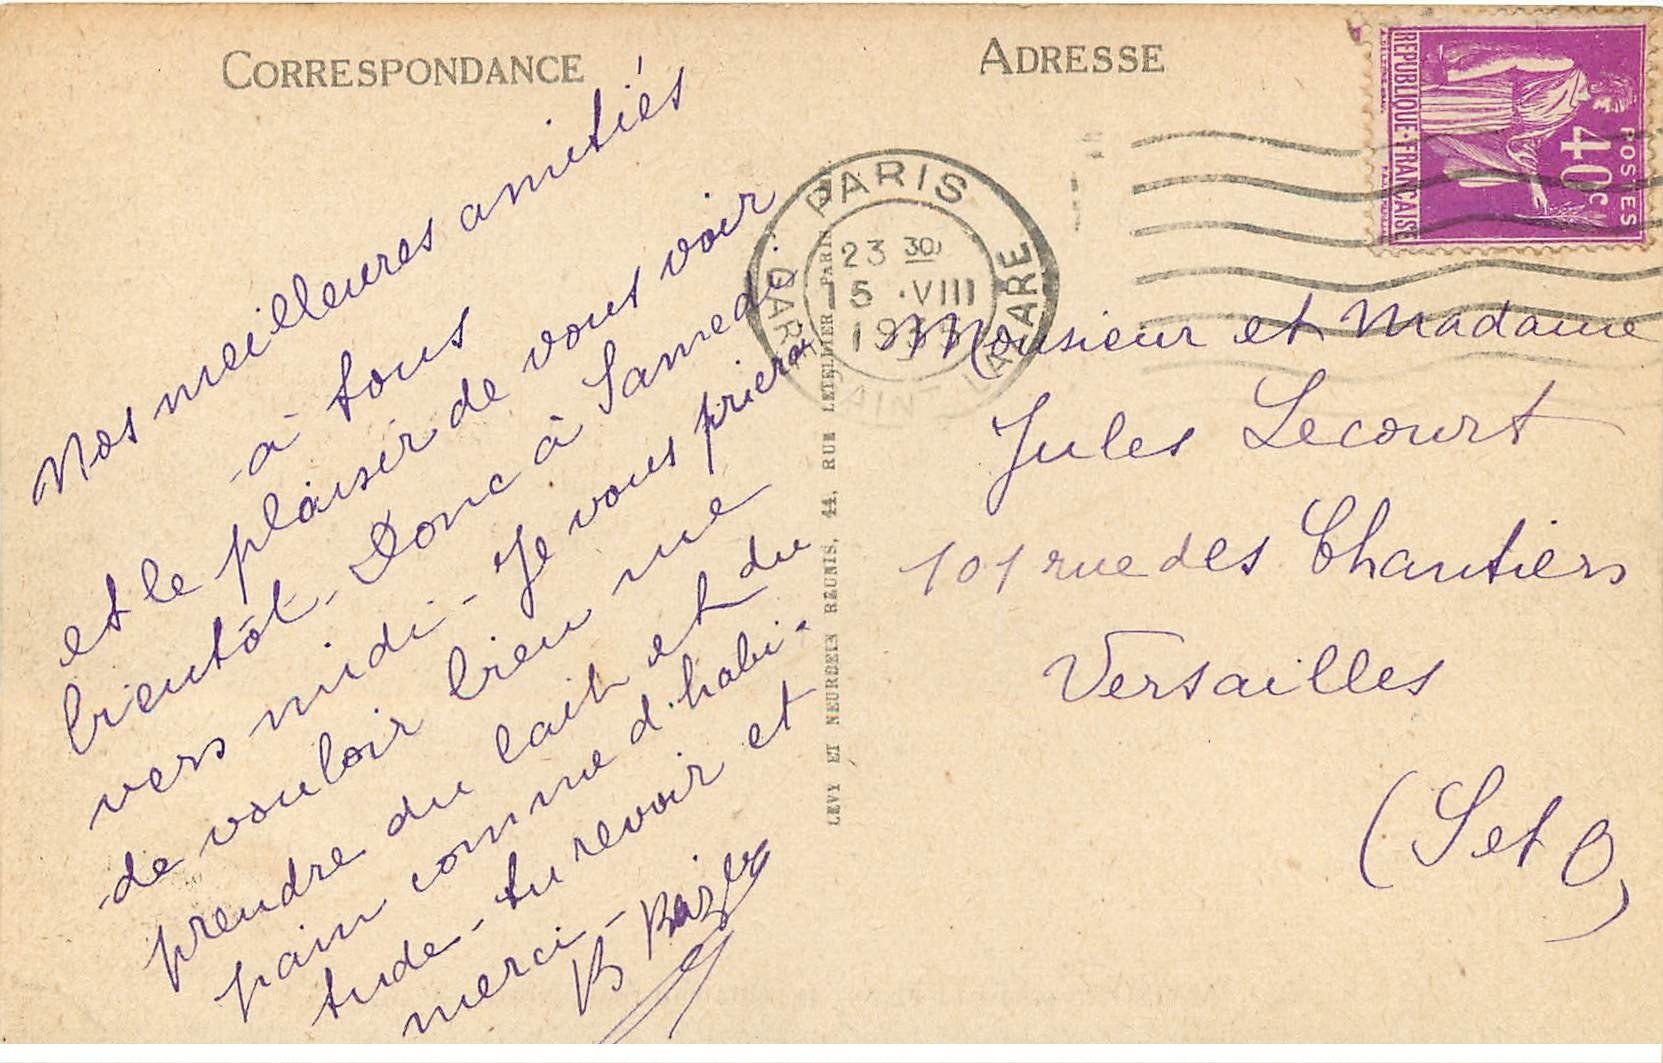 CORRESPONDANCE
Nos meilleures amitiés
à tous
et le plaisir de vous voir
bientôt - Donc à Samedi
vers midi - Je vous prierai
de vouloir bien me
prendre du lait et du
pain comme d'habi-
tude - Au revoir et
merci -
B
LEVY ET NEURDEIN RÉUNIS, 44, RUE LETELLIER PARIS
ADRESSE
REPUBLIQUE-FRANÇAISE
POSTES
40c
PARIS
GARE SAINT LAZARE
23 30
15 ·VIII
Monsieur et Madame
Jules Lecourt
101 rue des Chantiers
Versailles
(S et O)